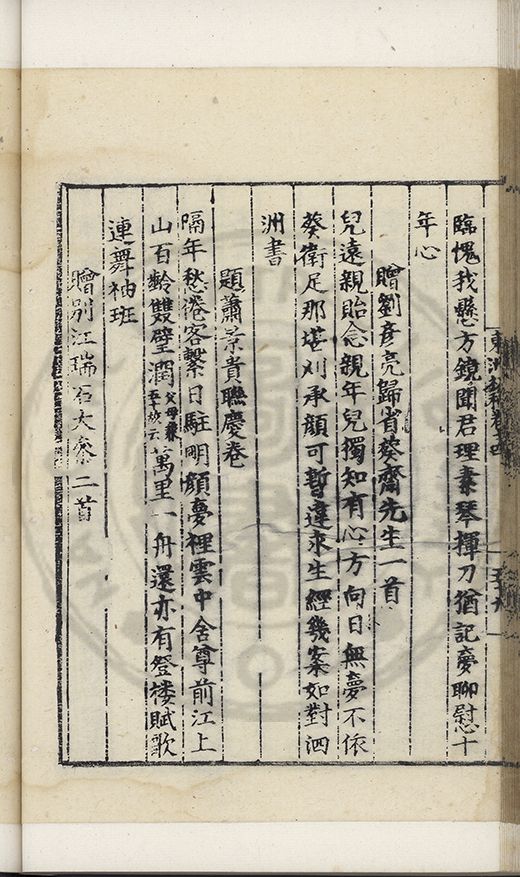 臨愧我懸方鏡聞君理素琴揮刀猶記夢聊慰十
年心
贈劉彥亮歸省葵齋先生一首
兒遠親貽念親年兒獨知有心方向日無夢不依
葵衛足那堪刈承顏可暫違求生經幾案如對泗
洲書
題蕭景貴聯慶卷
隔年愁倦客繫日駐明顏夢裡雲中舍尊前江上
山百齡雙璧潤父母兼五十故云萬里一舟還亦有登樓賦歌
連舞袖班
贈別江瑞石大參二首